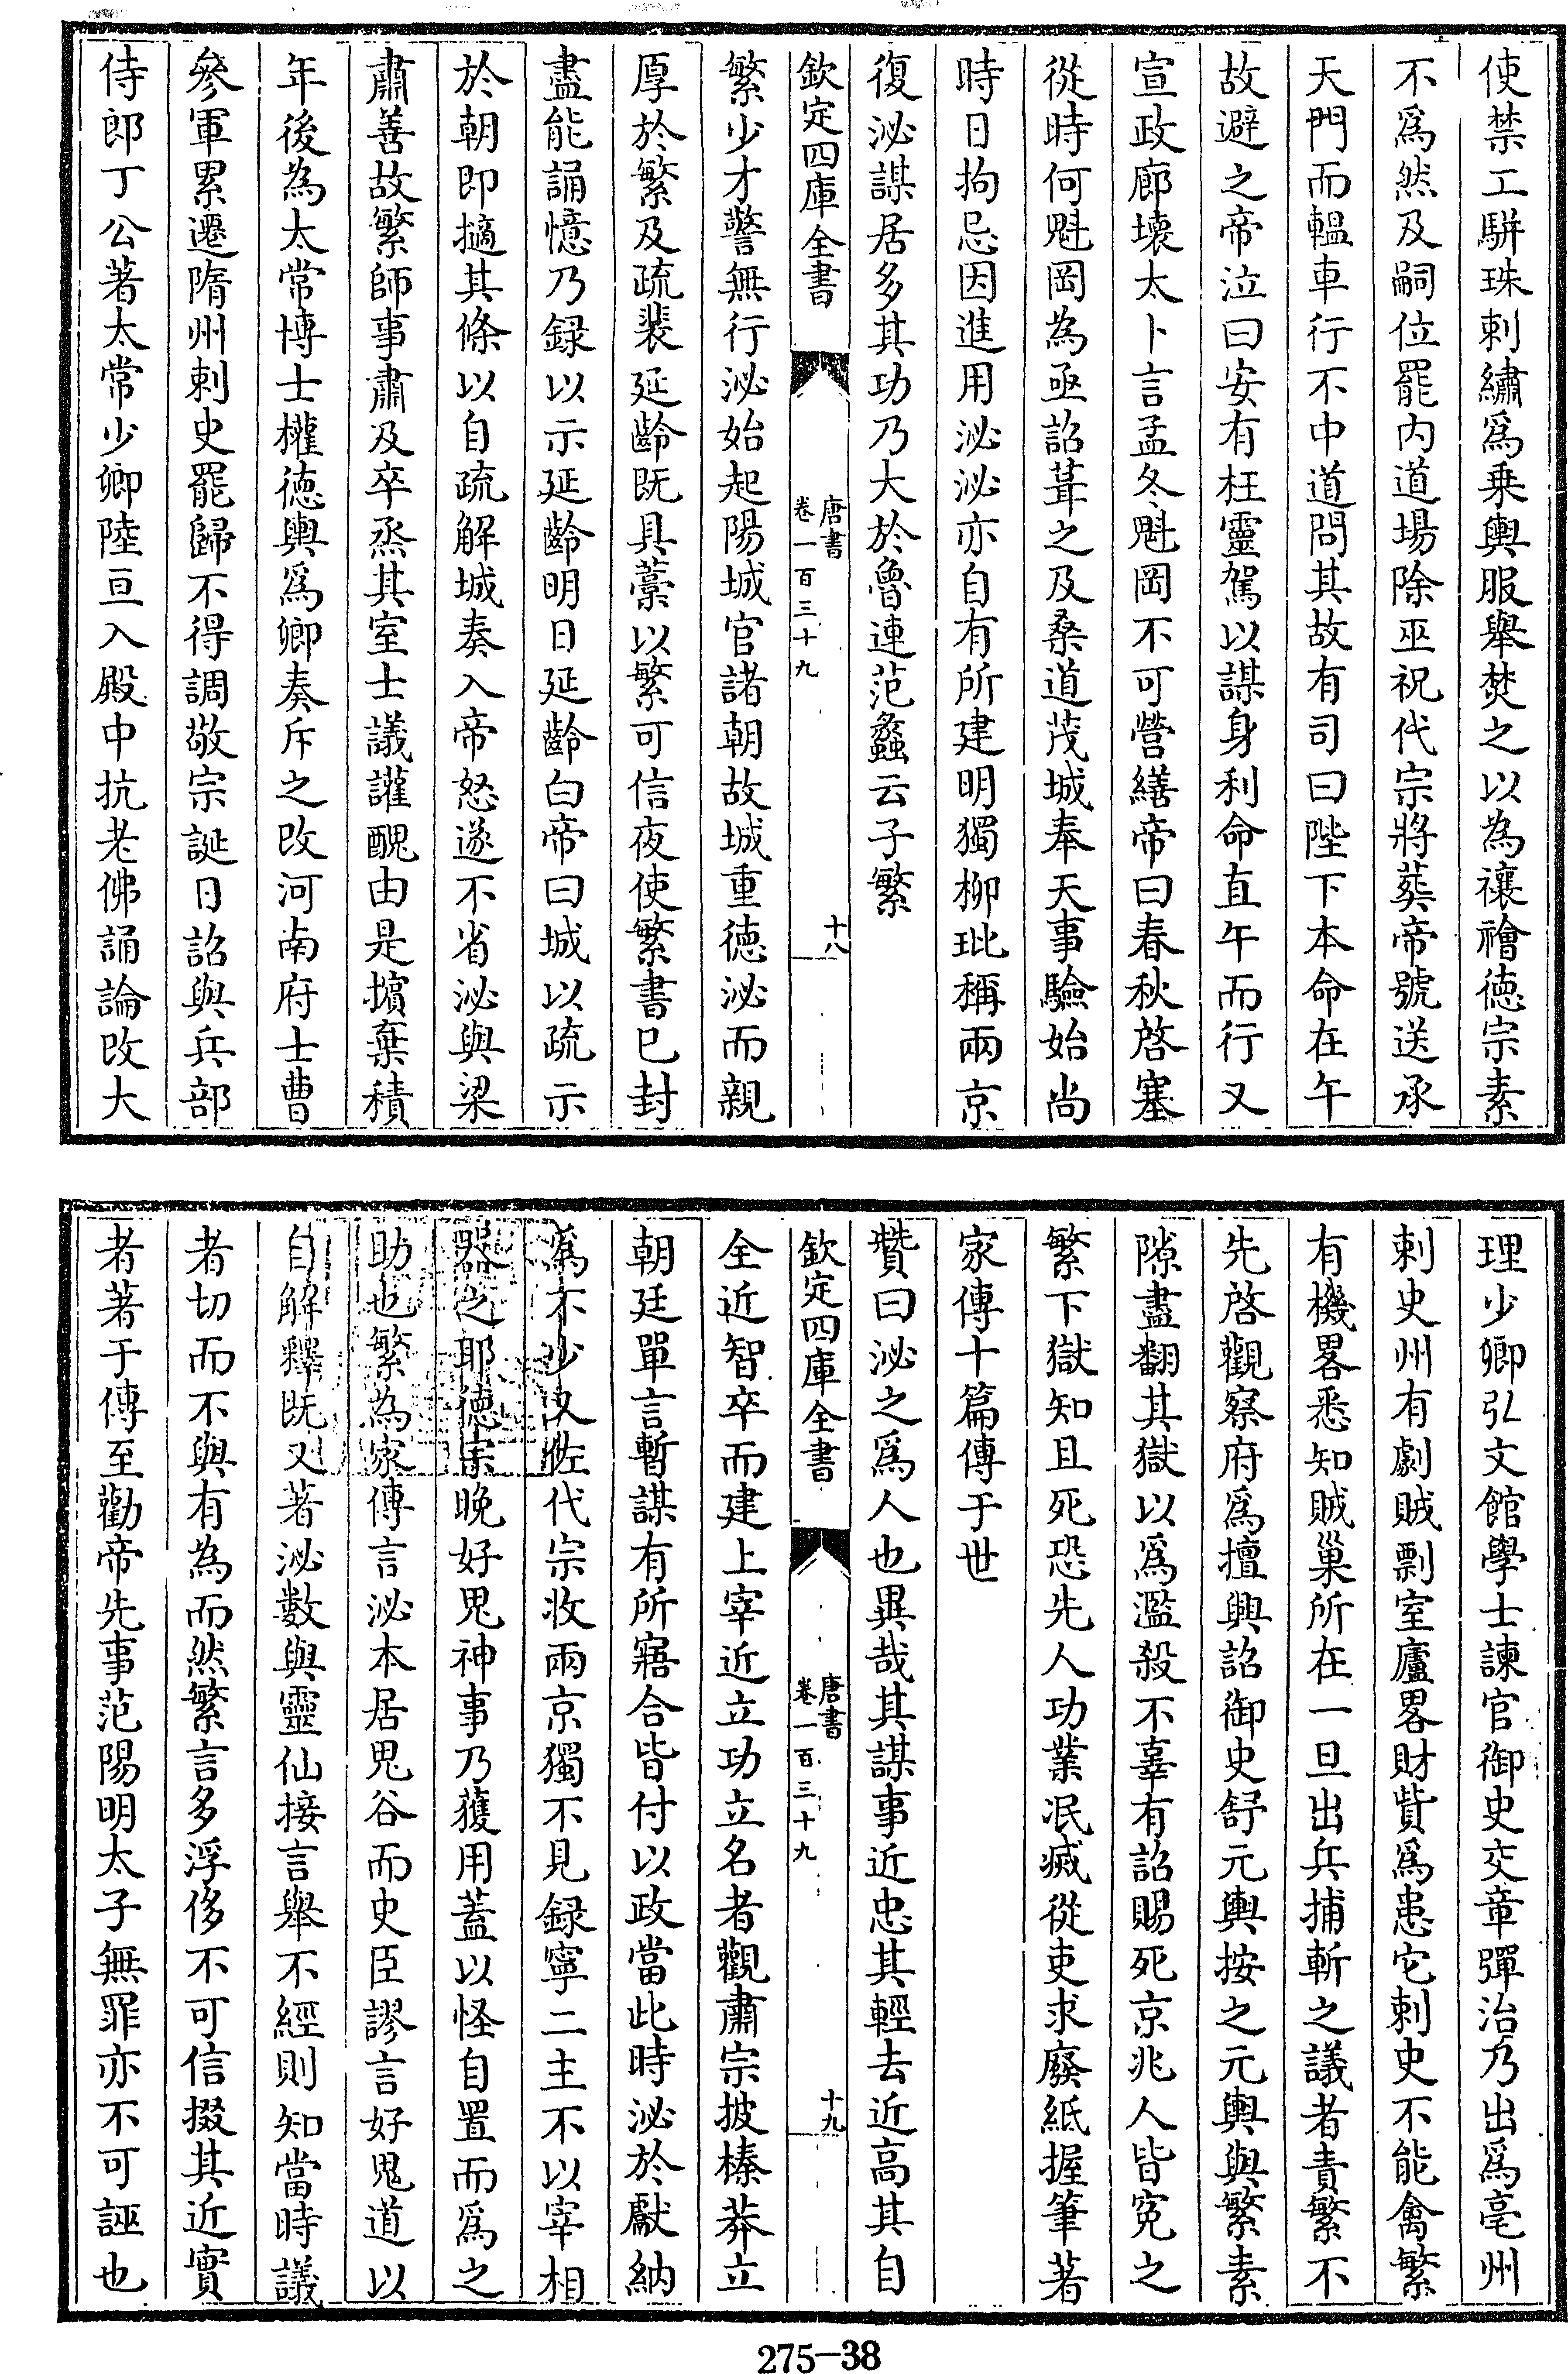 使禁工駢珠刺繡爲乗輿服舉焚之以為禳禬徳宗素
不爲然及嗣位罷内道場除巫祝代宗將葬帝號送承
天門而轀車行不中道問其故有司曰陛下本命在午
故避之帝泣曰安有枉靈駕以謀身利命直午而行又
宣政廊壊太卜言孟冬魁岡不可營繕帝曰春秋啓塞
從時何魁岡為亟詔葺之及桑道茂城奉天事驗始尚
時日拘忌因進用泌泌亦自有所建明獨柳玭稱兩京
復泌謀居多其功乃大於魯連范蠡云子繁
欽定四庫全書
唐書
卷一百三十九
十八
繁少才警無行泌始起陽城官諸朝故城重徳泌而親
厚於繁及疏裴延齡既具藁以繁可信夜使繁書已封
盡能誦憶乃録以示延齡明日延齡白帝曰城以疏示
於朝即擿其條以自疏解城奏入帝怒遂不省泌與梁
肅善故繁師事肅及卒烝其室士議讙醜由是擯棄積
年後為太常博士權徳輿爲卿奏斥之改河南府士曹
參軍累遷隋州刺史罷歸不得調敬宗誕日詔與兵部
侍郎丁公著太常少卿陸亘入殿中抗老佛誦論改大
理少卿弘文館學士諫官御史交章彈治乃出爲亳州
刺史州有劇賊剽室廬畧財貲爲患它刺史不能禽繁
有機畧悉知賊巢所在一旦出兵捕斬之議者責繁不
先啓觀察府爲擅興詔御史舒元輿按之元輿與繁素
隙盡翻其獄以爲濫殺不辜有詔賜死京兆人皆寃之
繁下獄知且死恐先人功業泯滅從吏求廢紙握筆著
家傳十篇傳于世
賛曰泌之爲人也異哉其謀事近忠其輕去近高其自
欽定四庫全書
唐書
卷一百三十九
十九
全近智卒而建上宰近立功立名者觀肅宗披榛莽立
朝廷單言暫謀有所寤合皆付以政當此時泌於獻納
爲不少又佐代宗收兩京獨不見録寧二主不以宰相
器之耶徳宗晚好鬼神事乃獲用蓋以怪自置而爲之
助也繁為家傳言泌本居鬼谷而史臣謬言好鬼道以
自解釋既又著泌數與靈仙接言舉不經則知當時議
者切而不與有為而然繁言多浮侈不可信掇其近實
者著于傳至勸帝先事范陽明太子無罪亦不可誣也
275-38